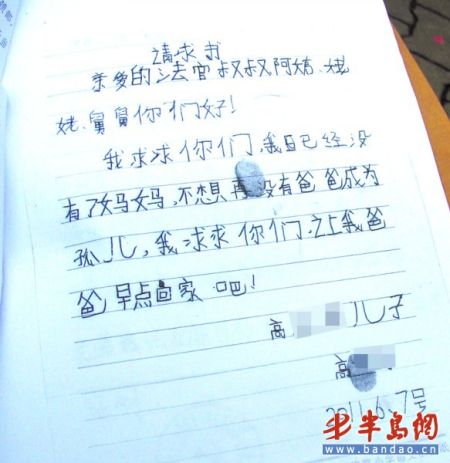 请求书
亲爱的法官叔叔阿姨、姥
姥、舅舅你们好!
我求求你们,我自已经没
有了妈妈,不想再没有爸爸成为
孤儿,我求求你们,让我爸
爸早点回家吧!
高 儿子
高
2011.6.7号
半岛網
www.bandao.cn